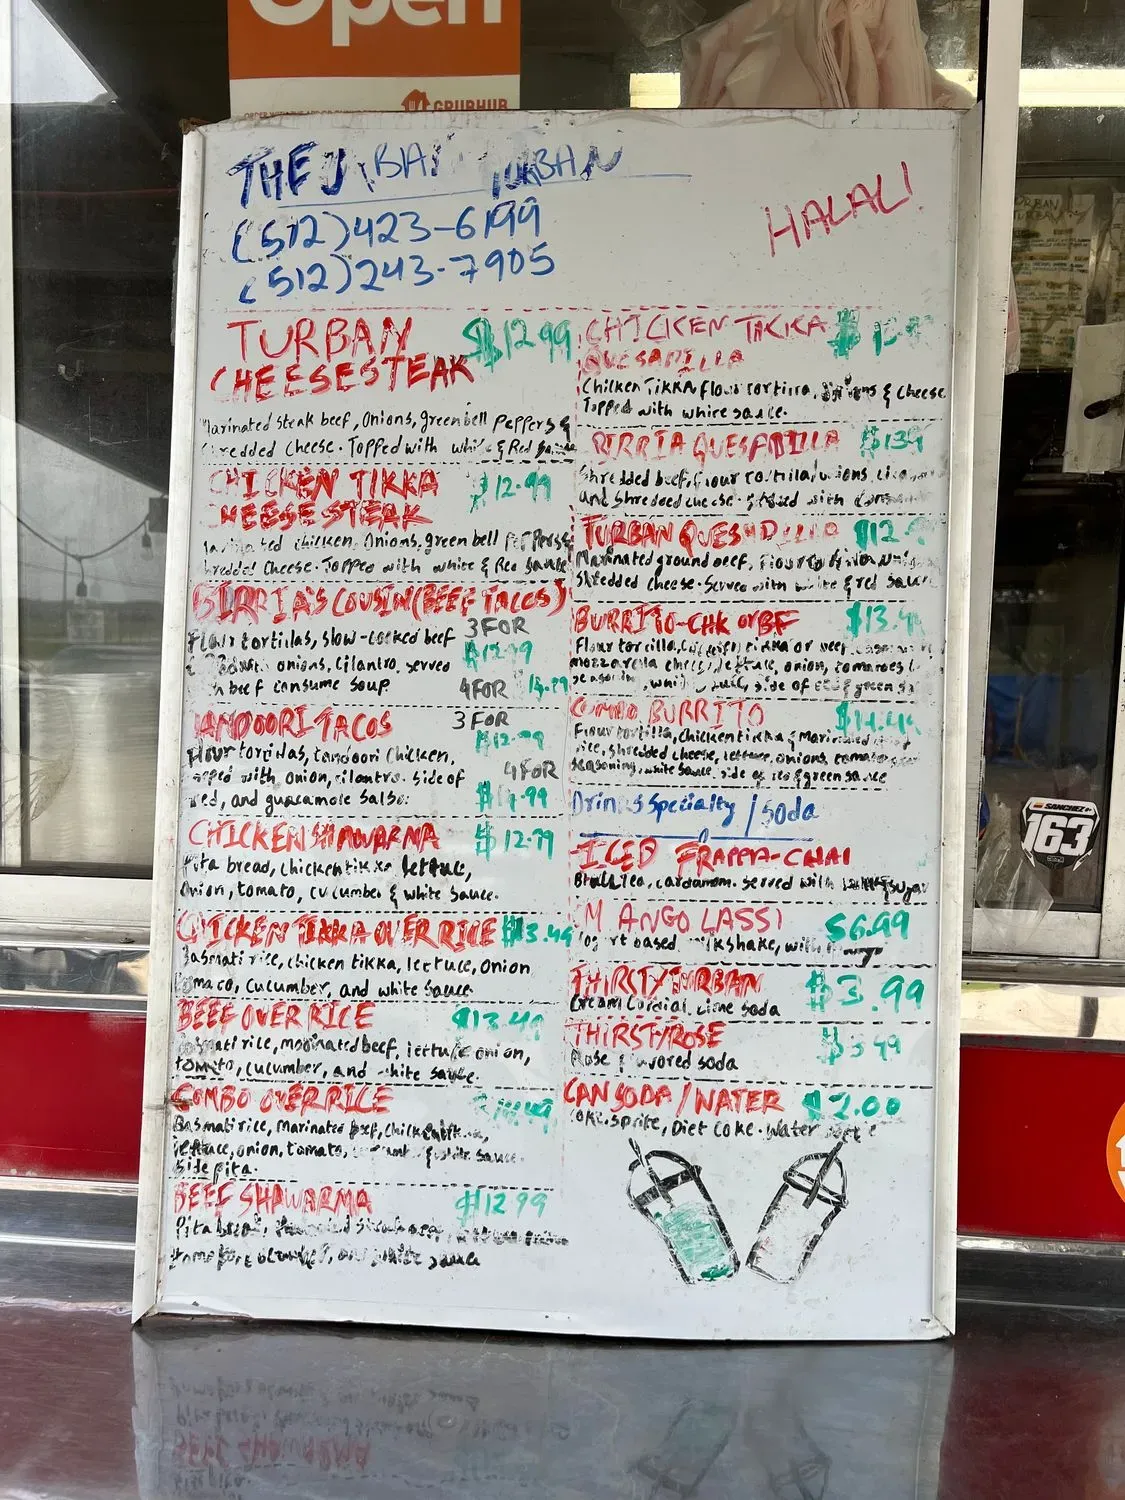 Open
GRUBHUB
THE URBAN TURBAN
(512)423-6199
(512)243-7905
HALAL!
TURBAN $12.99
CHEESESTEAK
Marinated steak beef, Onions, green bell Peppers &
shredded Cheese. Topped with white & Red Sauce
CHICKEN TIKKA $12.99
CHEESESTEAK
chicken, Onions, green bell Peppers
shredded Cheese. Topped with white & Red Sauce
BIRRIA'S COUSIN (BEEF TACOS)
Flour tortillas, slow-cooked beef 3 FOR
with onions, cilantro. served $12.99
beef consume soup. 4 FOR
TANDOORI TACOS 3 FOR
Flour tortillas, tandoori chicken, $12.99
topped with, onion, cilantro. side of 4 FOR
red, and guacamole Salsa.
CHICKEN SHAWARMA $12.99
Pita bread, chicken tikka lettuce,
Onion, tomato, cucumber & white sauce.
CHICKEN TIKKA OVER RICE $13.49
Basmati rice, chicken tikka, lettuce, onion
Tomato, cucumber, and white sauce
BEEF OVER RICE $13.49
Basmati rice, marinated beef, lettuce onion,
tomato, cucumber, and white sauce.
COMBO OVER RICE
Basmati rice, Marinated beef, chicken tikka,
lettuce, onion, tomato, & white sauce.
Side pita.
BEEF SHAWARMA $12.99
Pita bread,
and white sauce
CHICKEN TIKKA
QUESADILLA
Chicken Tikka, flour tortilla, & Cheese
Topped with white sauce.
BIRRIA QUESADILLA
Shredded beef, flour tortilla, onions,
and shredded cheese. with
TURBAN QUESADILLA
Marinated ground beef, Flour
Shredded cheese. Served with white & red sauce
BURRITO-CHK or BF
Flour tortilla, tikka or beef,
mozzarella cheese, lettuce, onion, tomatoes
seasoning, side of & green
COMBO BURRITO
Flour tortilla, chicken tikka & Marinated
rice, shredded cheese, lettuce, onions,
seasoning, white sauce, side of red & green sauce
Drinks Specialty / Soda
ICED FRAPPA-CHAI
cardamom. Served with
MANGO LASSI $6.99
Yogurt based milkshake, with
THIRSTY TURBAN $3.99
Cream Cordial, Lime soda
THIRSTY ROSE
Rose flavored soda
CAN SODA / WATER $2.00
Coke, Sprite, Diet Coke. Water
SANCHEZ
163